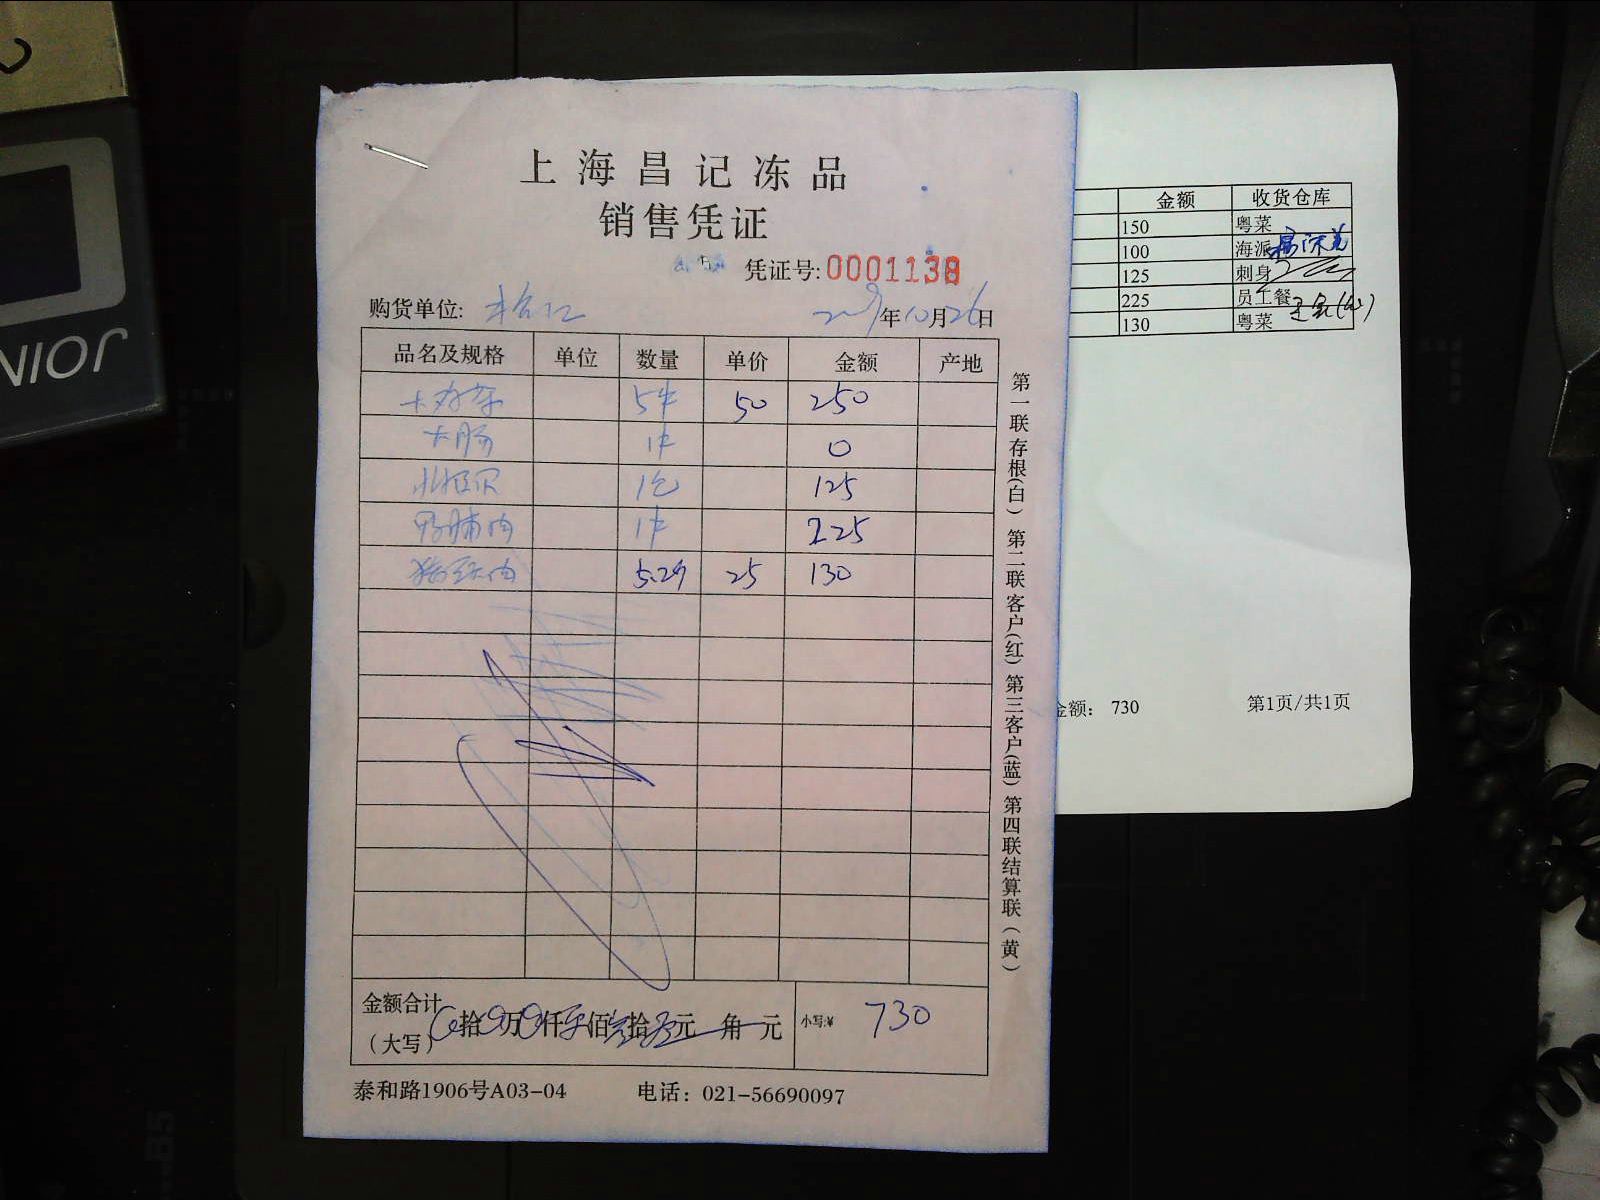 上海昌记冻品
销售凭证
凭证号:0001138
购货单位:
年10月26日
品名及规格 单位 数量 单价 金额 产地
5件 50 250
大肠 1件 0
1包 125
1件 225
猪头肉 5.2斤 25 130
金额合计
(大写) 拾 万 仟 佰 拾 元 角 元 小写:¥ 730
泰和路1906号A03-04 电话：021-56690097
第一联存根(白) 第二联客户(红) 第三客户(蓝) 第四联结算联(黄)
金额 收货仓库
150 粤菜
100 海派
125 刺身
225 员工餐
130 粤菜
金额： 730 第1页/共1页
JOINIOR
B5